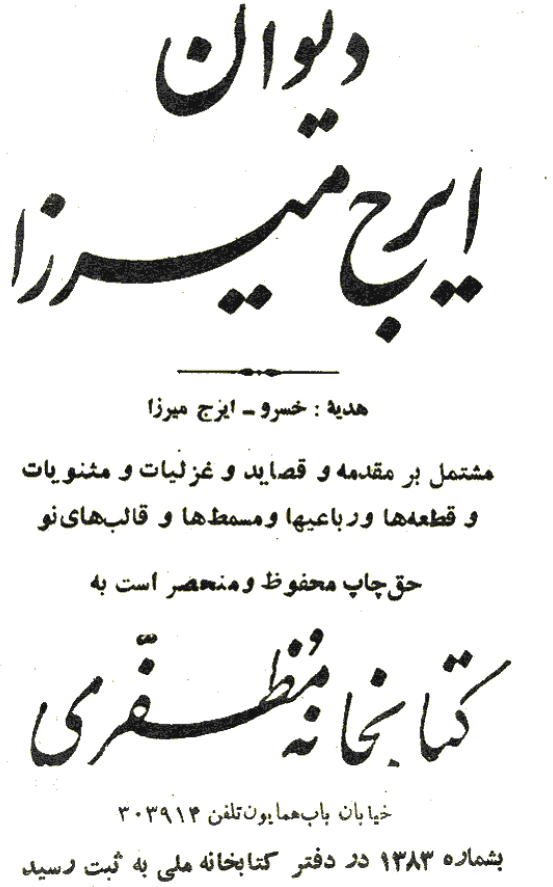 دیوان
ایرج میرزا
هدیهٔ : خسرو - ایرج میرزا
مشتمل بر مقدمه و قصاید و غزلیات و مثنویات
و قطعه‌ها و رباعیها و مسمط‌ها و قالب‌های نو
حق چاپ محفوظ و منحصر است به
کتابخانه مُظفّری
خیابان باب همایون تلفن ۳۰۳۹۱۴
بشماره ۱۳۸۳ در دفتر کتابخانه ملی به ثبت رسید